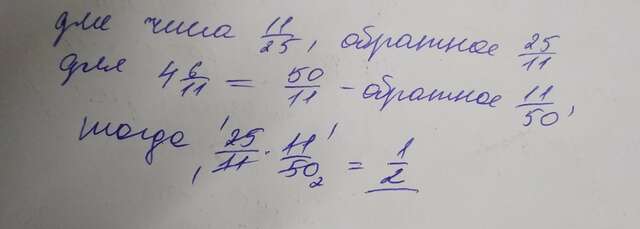 для числа 11/25, обратное 25/11
для 4 6/11 = 50/11 - обратное 11/50,
тогда 25/11 · 11/50 = 1/2